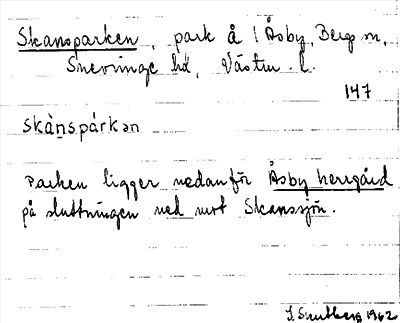 Skansparken, park å 1 Åsby, Bergs sn,
Snevringe hd, Västm. l.
147
Skànspárkən
Parken ligger nedanför Åsby herrgård
på sluttningen ned mot Skanssjön.
1962